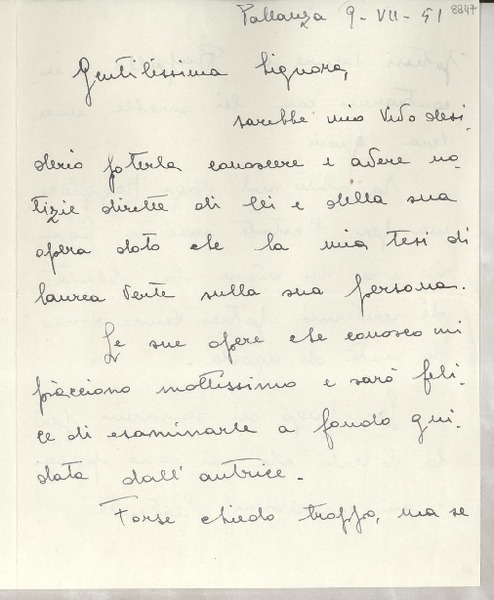 Pallanza 9-VII-51 8847
Gentilissima Signora,
sarebbe mio vivo desi-
derio poterla conoscere e avere no-
tizie dirette di lei e della sua
opera dato che la mia tesi di
laurea verte sulla sua persona.
Le sue opere che conosco mi
piacciono moltissimo e sarò feli-
ce di esaminarle a fondo gui-
data dall'autrice.
Forse chiedo troppo, ma se